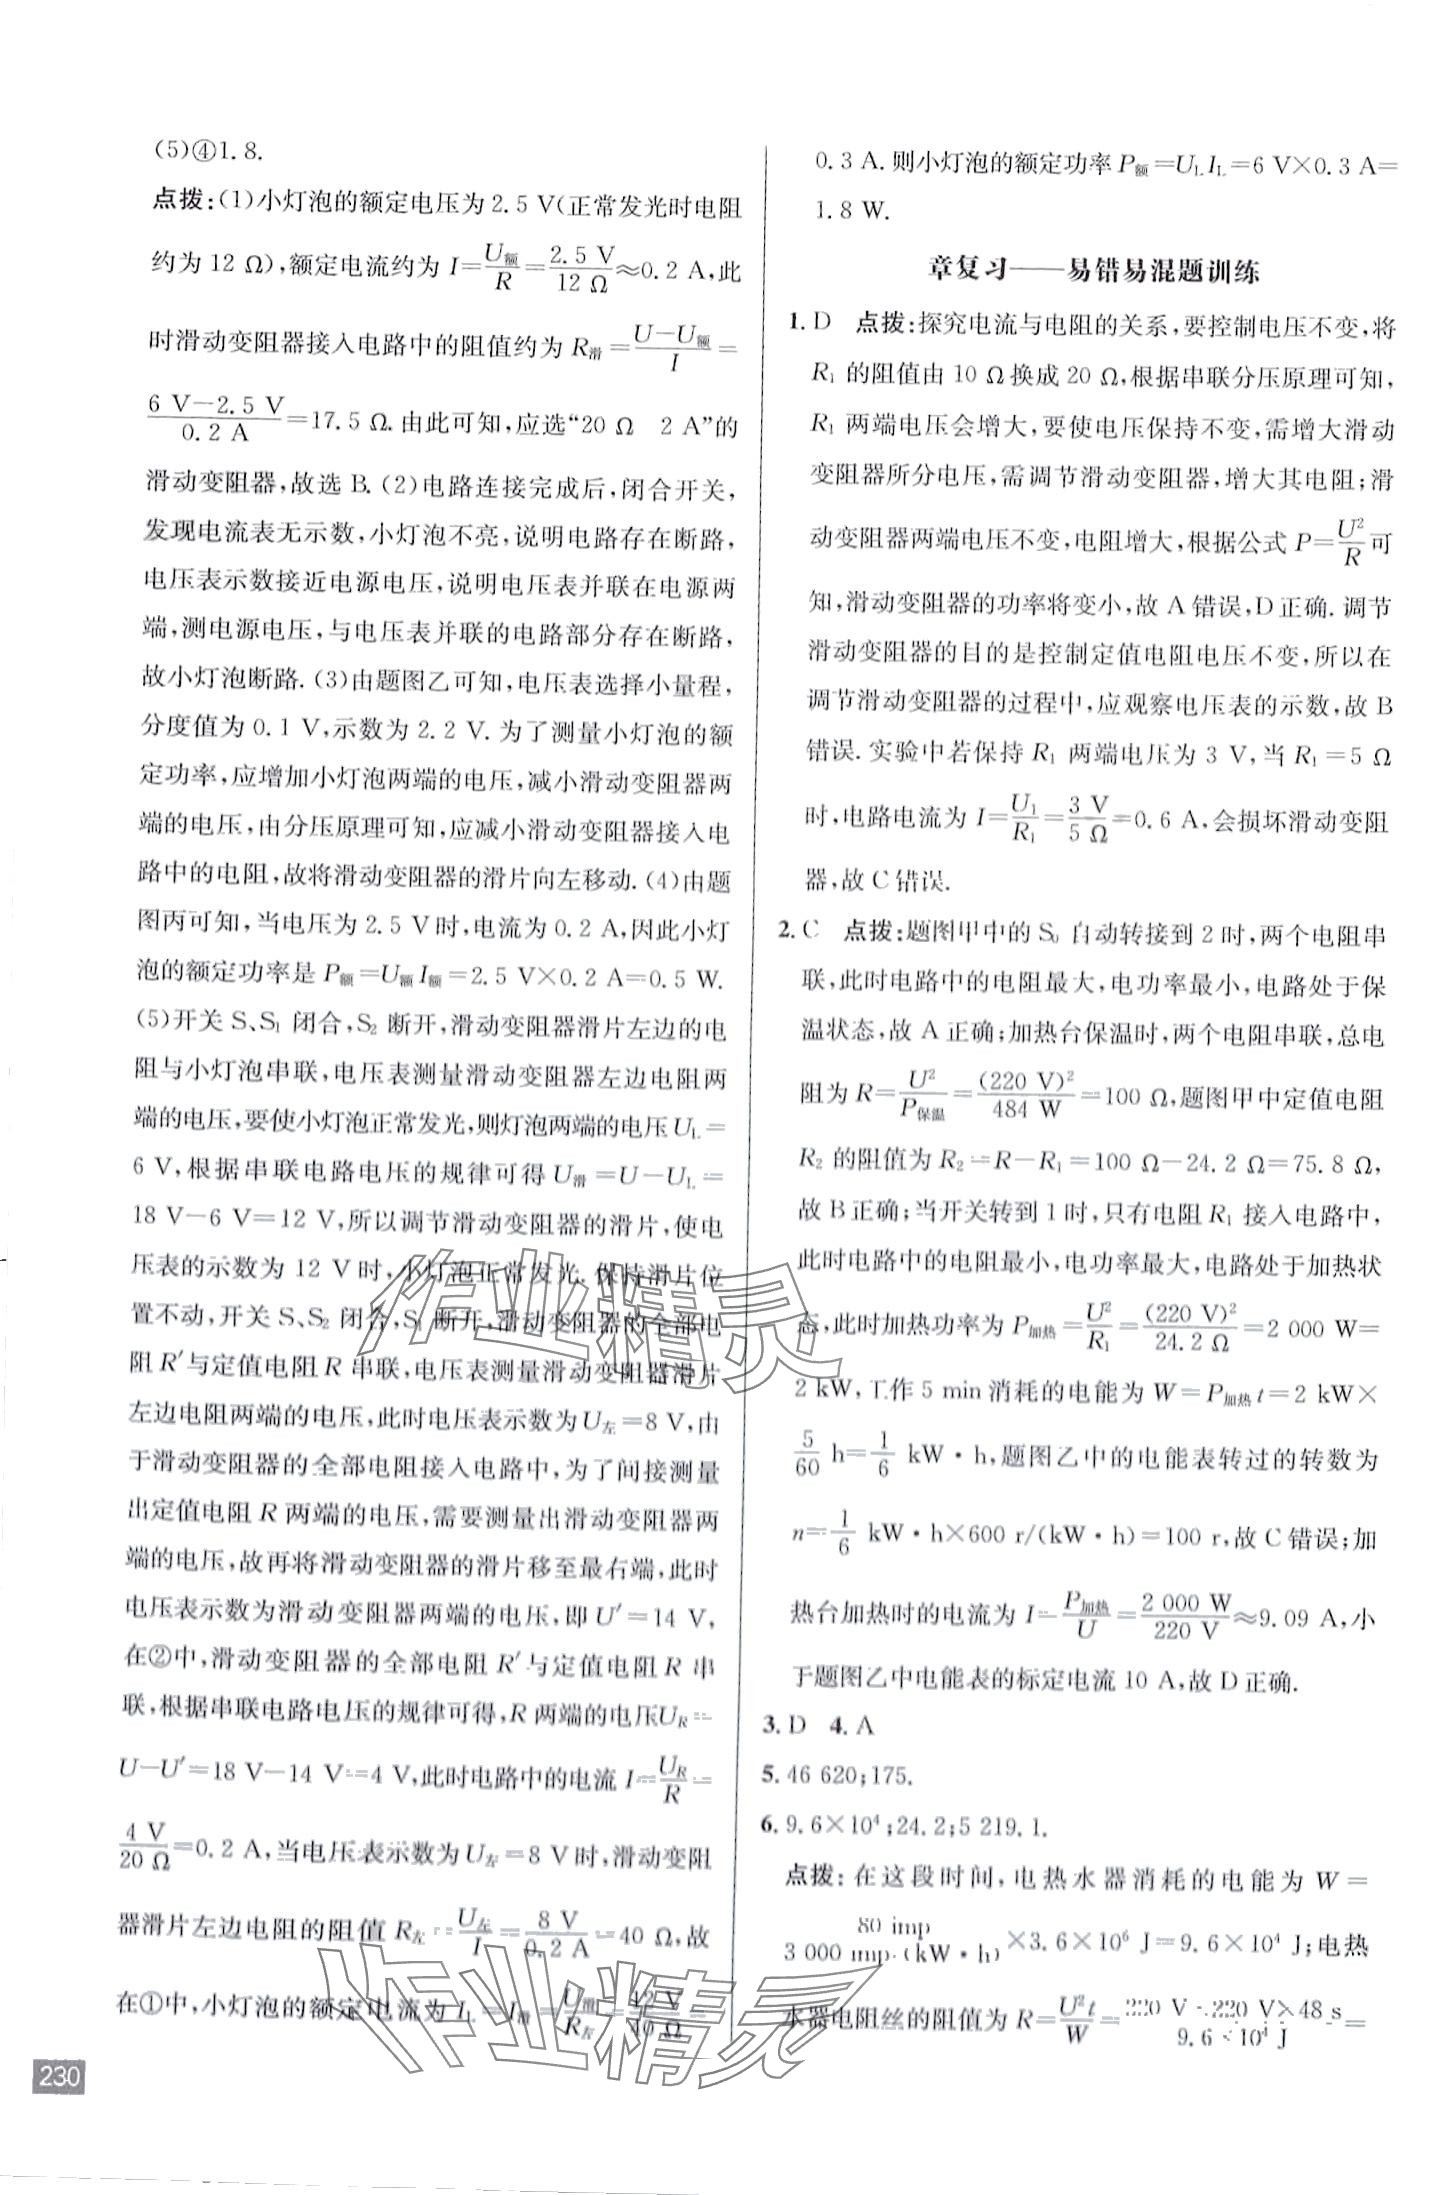 (5)④1.8.
点拨:(1)小灯泡的额定电压为2.5 V(正常发光时电阻
约为12 Ω),额定电流约为 I=U额/R=2.5 V/12 Ω≈0.2 A,此
时滑动变阻器接入电路中的阻值约为 R滑=(U-U额)/I=
(6 V-2.5 V)/0.2 A=17.5 Ω.由此可知,应选“20 Ω 2 A”的
滑动变阻器,故选 B.(2)电路连接完成后,闭合开关,
发现电流表无示数,小灯泡不亮,说明电路存在断路,
电压表示数接近电源电压,说明电压表并联在电源两
端,测电源电压,与电压表并联的电路部分存在断路,
故小灯泡断路.(3)由题图乙可知,电压表选择小量程,
分度值为0.1 V,示数为2.2 V.为了测量小灯泡的额
定功率,应增加小灯泡两端的电压,减小滑动变阻器两
端的电压,由分压原理可知,应减小滑动变阻器接入电
路中的电阻,故将滑动变阻器的滑片向左移动.(4)由题
图丙可知,当电压为2.5 V时,电流为0.2 A,因此小灯
泡的额定功率是 P额=U额I额=2.5 V×0.2 A=0.5 W.
(5)开关 S、S₁ 闭合,S₂ 断开,滑动变阻器滑片左边的电
阻与小灯泡串联,电压表测量滑动变阻器左边电阻两
端的电压,要使小灯泡正常发光,则灯泡两端的电压 U_L=
6 V,根据串联电路电压的规律可得 U滑=U-U_L=
18 V-6 V=12 V,所以调节滑动变阻器的滑片,使电
压表的示数为 12 V 时,小灯泡正常发光.保持滑片位
置不动,开关 S、S₂ 闭合,S₁ 断开,滑动变阻器的全部电
阻 R′与定值电阻 R 串联,电压表测量滑动变阻器滑片
左边电阻两端的电压,此时电压表示数为 U左=8 V,由
于滑动变阻器的全部电阻接入电路中,为了间接测量
出定值电阻 R 两端的电压,需要测量出滑动变阻器两
端的电压,故再将滑动变阻器的滑片移至最右端,此时
电压表示数为滑动变阻器两端的电压,即 U′=14 V,
在②中,滑动变阻器的全部电阻 R′与定值电阻 R 串
联,根据串联电路电压的规律可得,R 两端的电压U_R=
U-U′=18 V-14 V=4 V,此时电路中的电流 I=U_R/R=
4 V/20 Ω=0.2 A,当电压表示数为 U左=8 V时,滑动变阻
器滑片左边电阻的阻值 R左=U左/I=8 V/0.2 A=40 Ω,故
在①中,小灯泡的额定电流为 I_L=I滑=U滑/R左=12 V/40 Ω=
230
0.3 A.则小灯泡的额定功率 P额=U_L I_L=6 V×0.3 A=
1.8 W.
章复习——易错易混题训练
1. D 点拨:探究电流与电阻的关系,要控制电压不变,将
R₁ 的阻值由 10 Ω换成 20 Ω,根据串联分压原理可知,
R₁ 两端电压会增大,要使电压保持不变,需增大滑动
变阻器所分电压,需调节滑动变阻器,增大其电阻;滑
动变阻器两端电压不变,电阻增大,根据公式 P=U²/R可
知,滑动变阻器的功率将变小,故 A 错误,D 正确.调节
滑动变阻器的目的是控制定值电阻电压不变,所以在
调节滑动变阻器的过程中,应观察电压表的示数,故 B
错误.实验中若保持 R₁ 两端电压为 3 V,当 R₁=5 Ω
时,电路电流为 I=U₁/R₁=3 V/5 Ω=0.6 A,会损坏滑动变阻
器,故 C 错误.
2. C 点拨:题图甲中的 S₀ 自动转接到 2 时,两个电阻串
联,此时电路中的电阻最大,电功率最小,电路处于保
温状态,故 A 正确;加热台保温时,两个电阻串联,总电
阻为 R=U²/P保温=(220 V)²/484 W=100 Ω,题图甲中定值电阻
R₂ 的阻值为 R₂=R-R₁=100 Ω-24.2 Ω=75.8 Ω,
故 B 正确;当开关转到 1 时,只有电阻 R₁ 接入电路中,
此时电路中的电阻最小,电功率最大,电路处于加热状
态,此时加热功率为 P加热=U²/R₁=(220 V)²/24.2 Ω=2 000 W=
2 kW,工作 5 min 消耗的电能为 W=P加热t=2 kW×
5/60 h=1/6 kW·h,题图乙中的电能表转过的转数为
n=1/6 kW·h×600 r/(kW·h)=100 r,故 C 错误;加
热台加热时的电流为 I=P加热/U=2 000 W/220 V≈9.09 A,小
于题图乙中电能表的标定电流 10 A,故 D 正确.
3. D 4. A
5. 46 620;175.
6. 9.6×10⁴;24.2;5 219.1.
点拨:在这段时间,电热水器消耗的电能为 W=
80 imp/3 000 imp·(kW·h)×3.6×10⁶ J=9.6×10⁴ J;电热
水器电阻丝的阻值为 R=U²t/W=220 V×220 V×48 s/9.6×10⁴ J=
作业精灵
作业精灵